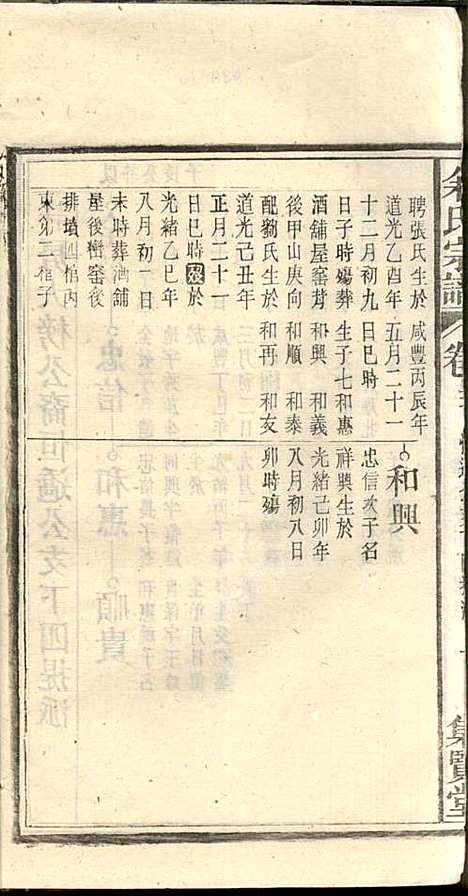 聘張氏生於
道光乙酉年
十二月初九
日子時殤葬
酒舖屋窑芳
後甲山庚向
配勷氏生於
道光己丑年
正月二十一
日巳時歿於
光緒乙巳年
八月初一日
未時葬酒舖
屋後巒窑後
排墳四棺内
東第二棺子
咸豐丙辰年
五月二十一
日巳時
生子七和惠
和興 和義
和順 和泰
和再 和友
和興
忠信次子名
祥興生於
光緒己卯年
八月初八日
卯時殤
余氏宗譜
卷
集賢堂